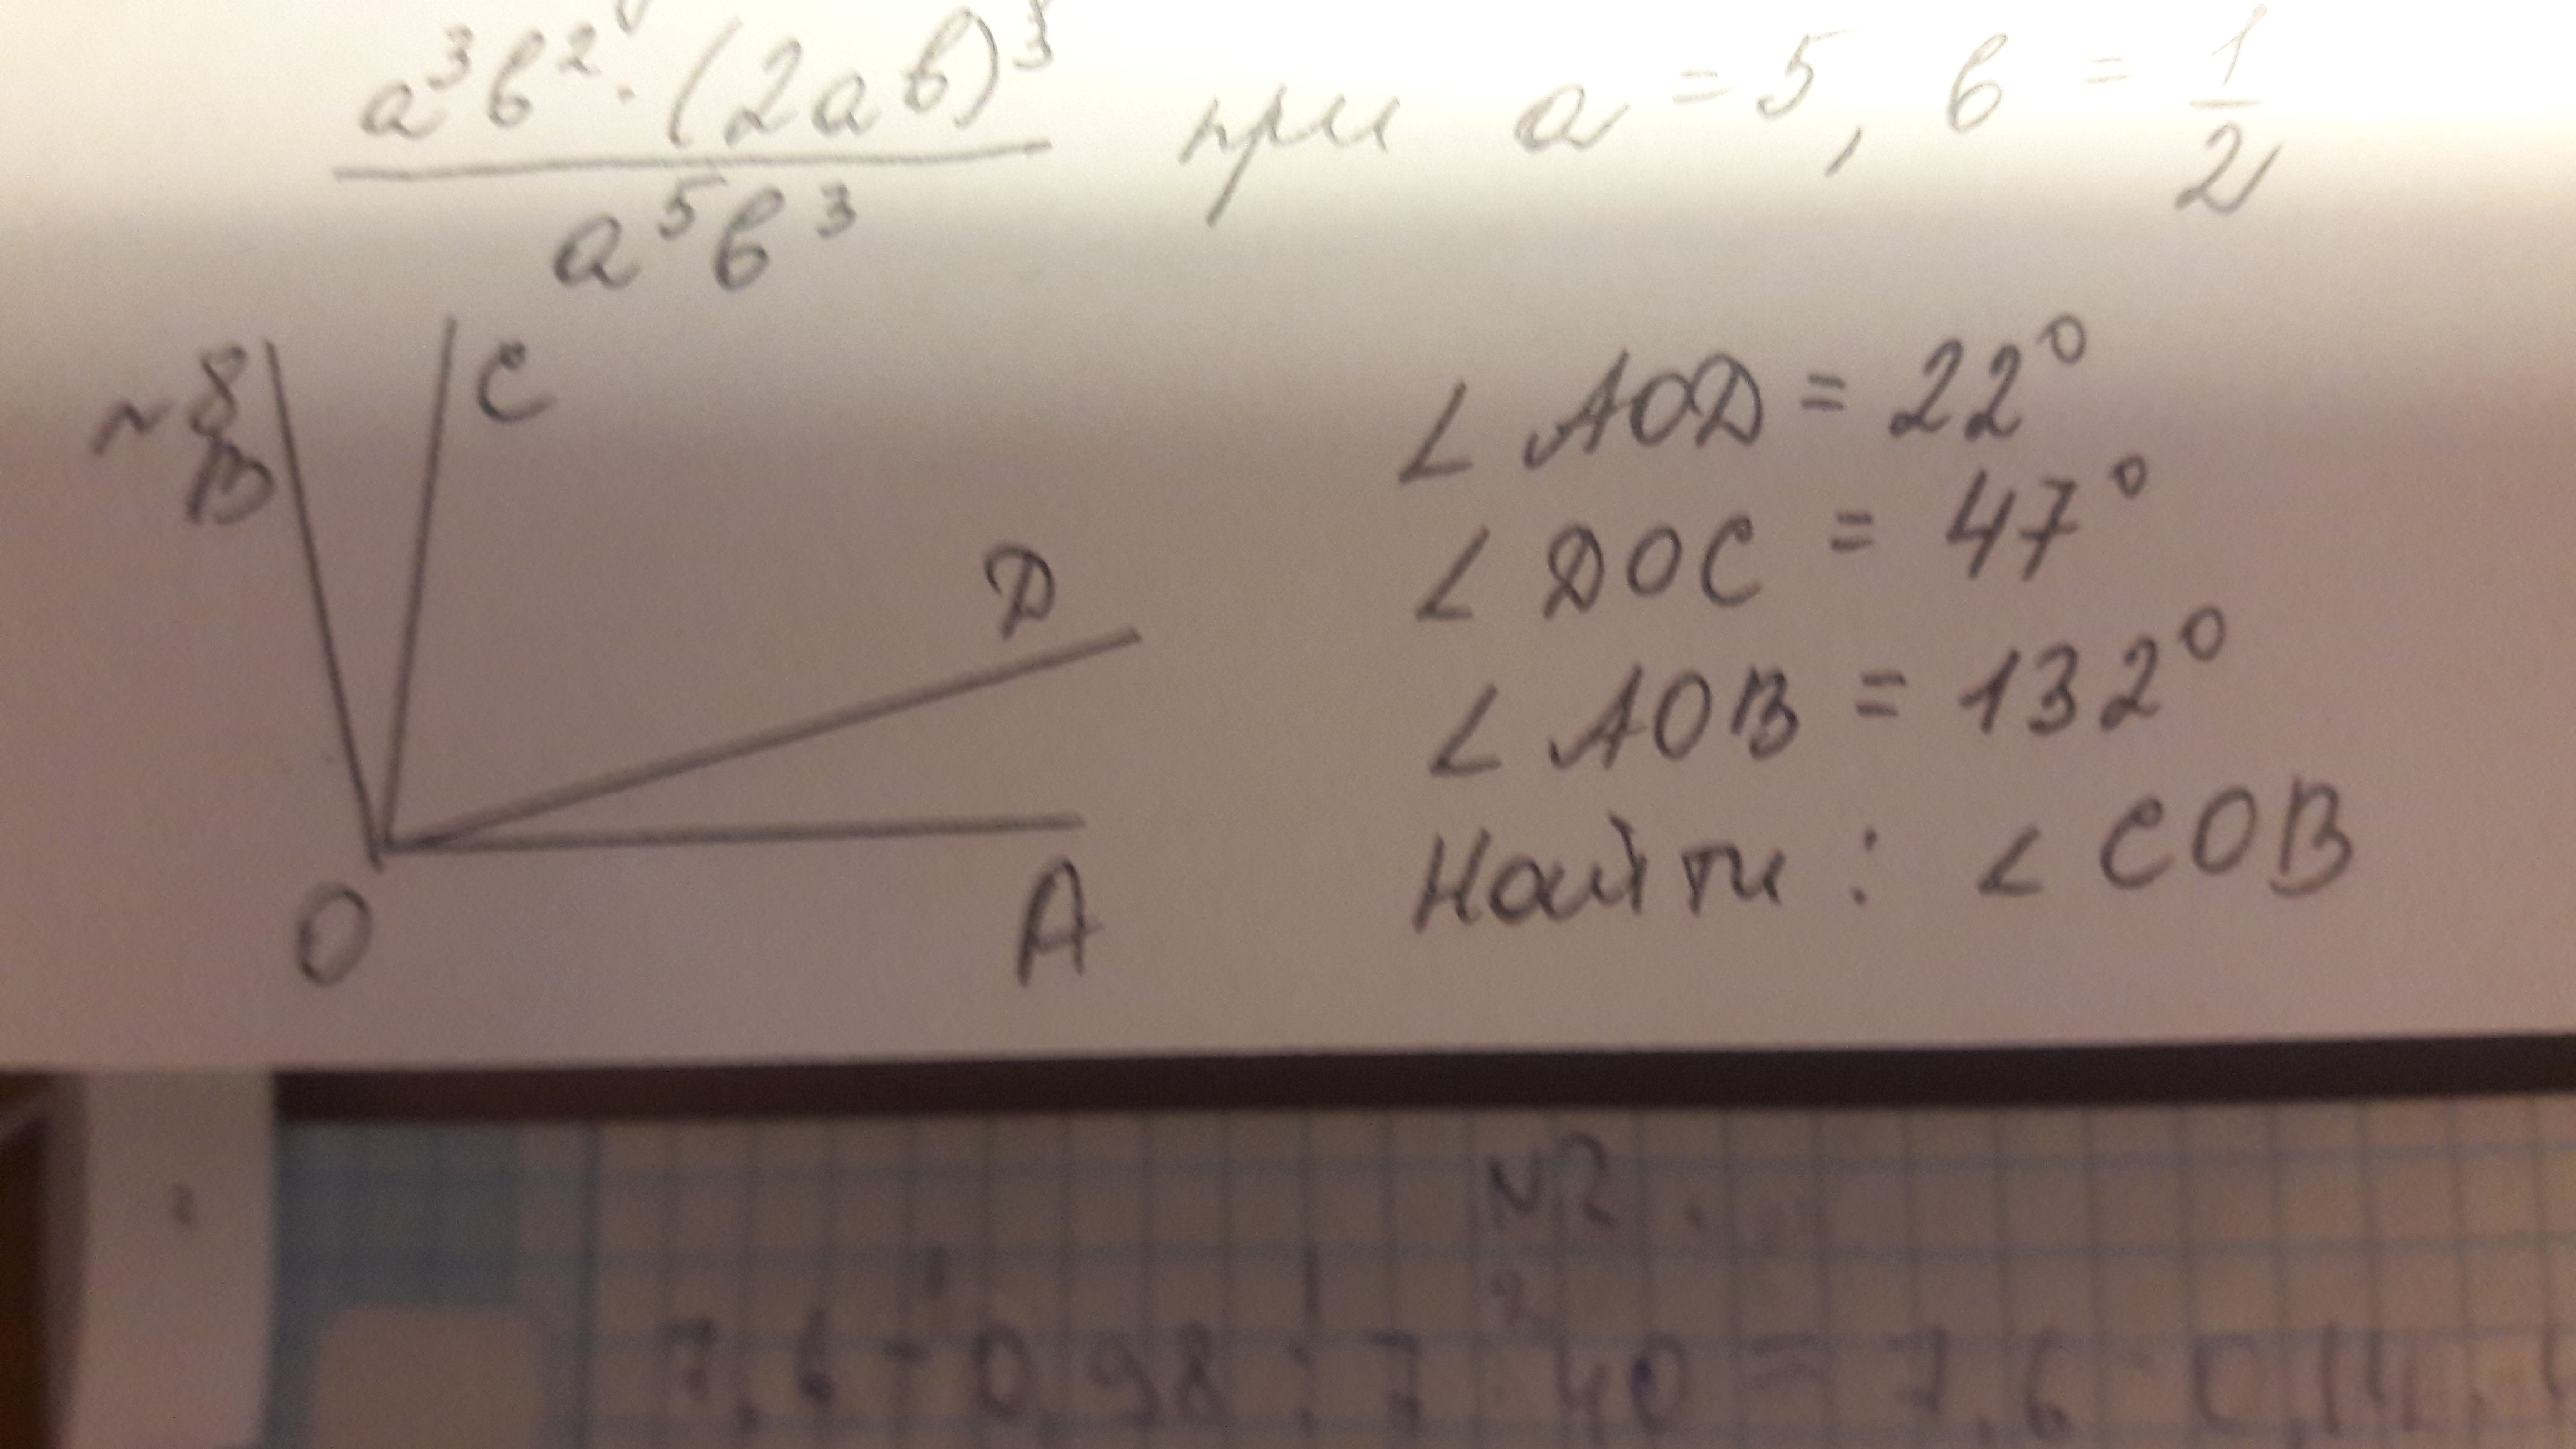 a³b² · (2ab)³ / a⁵b³ при a = 5, b = 1/2
№8
B C
∠ AOD = 22°
∠ DOC = 47°
D
∠ AOB = 132°
Найти : ∠ COB
O A
№2.
7,6 - 0,98 : 7 · 40 = 7,6 - 0,14 ·